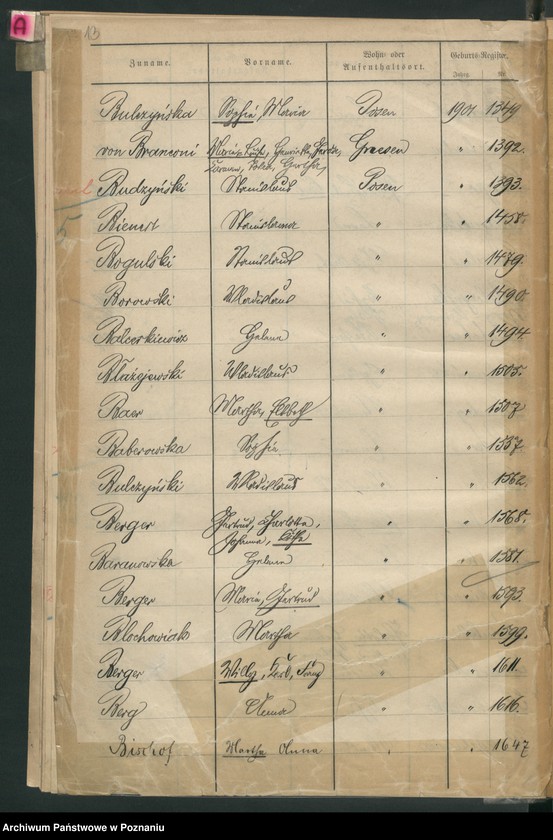 A
13
Zuname. Vorname. Wohn- oder Aufenthaltsort. Geburts-Register. Jahrg. Nr.
Bulczyńska Sophie, Maria Posen 1901 1349
von Branconi Maria, Luise, Henriette, Gnesen " 1392.
Carmen, Bertha,
Budzyński Stanislaus Posen " 1393.
Bienert Stanislawa " " 1458.
Rogulski Stanislaus " " 1479.
Borowski Wladislaus " " 1490.
Balcerkiewicz Helene " " 1494.
Błażejewski Wladislaus " " 1505.
Baer Martha, Elsbeth " " 1507
Baberowska Sophie " " 1557
Bulczyński Wladislaus " " 1562.
Berger Gertrud, Charlotte, " " 1568.
Johanna, Käthe
Baranowska Helene " " 1581.
Berger Maria, Gertrud " " 1593.
Blochowiak Martha " " 1599.
Berger Willy, Karl, Franz " " 1611.
Berg Anna " " 1616.
Bischof Martha Anna " " 1647
Archiwum Państwowe w Poznaniu